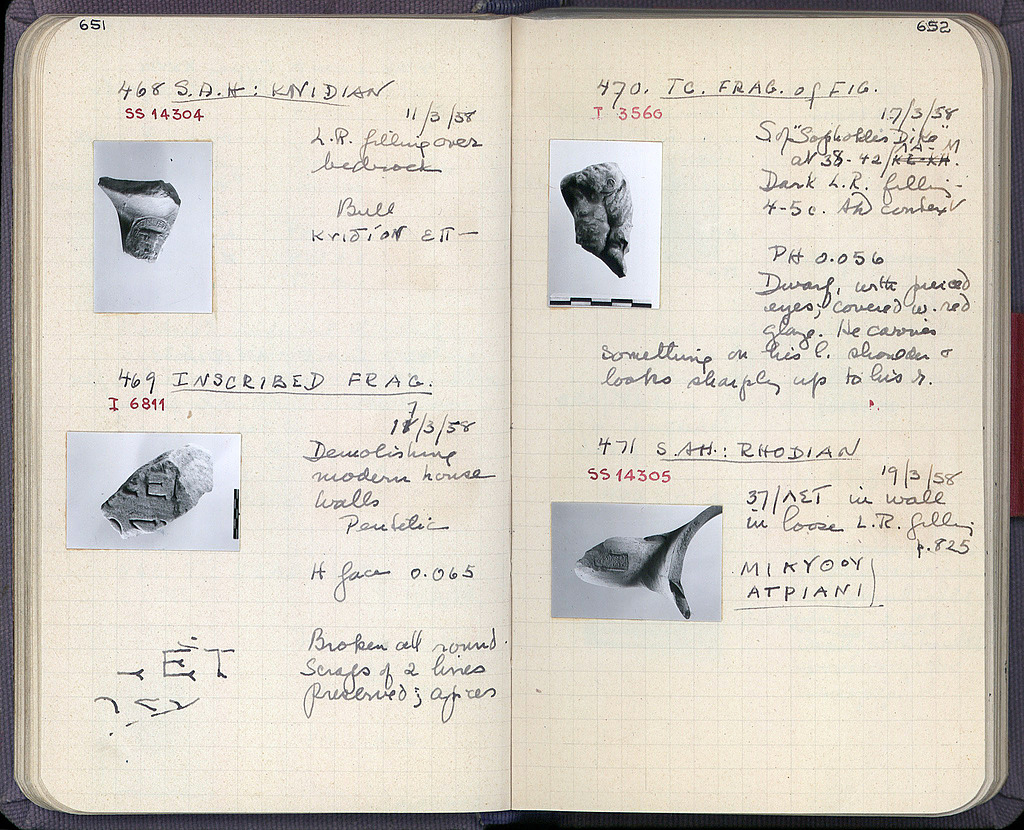 651
468 S.A.H: KNIDIAN
SS 14304
11/3/58
L.R. filling over
bedrock
Bull
ΚΝΙΔΙΟΝ ΕΠ—
469 INSCRIBED FRAG.
I 6811
7/3/58
Demolishing
modern house
walls
Pentelic
H face 0.065
Broken all round.
Scraps of 2 lines
preserved; apices
ΕΤ
652
470. TC. FRAG. of FIG.
I 3560
17/3/58
S of "Sophokles Dike"
at 38-42/ΛΑ-Μ
ΚΕ-ΚΗ.
Dark L.R. filling-
4-5c. AD context
PH 0.056
Dwarf, with pierced
eyes; covered w. red
glaze. He carries
something on his l. shoulder &
looks sharply up to his r.
471 S.AH.: RHODIAN
SS 14305
19/3/58
37/ΛΣΤ in wall
in loose L.R. filling
p. 825
ΜΙΚΥΘΟΥ
ΑΓΡΙΑΝΙ